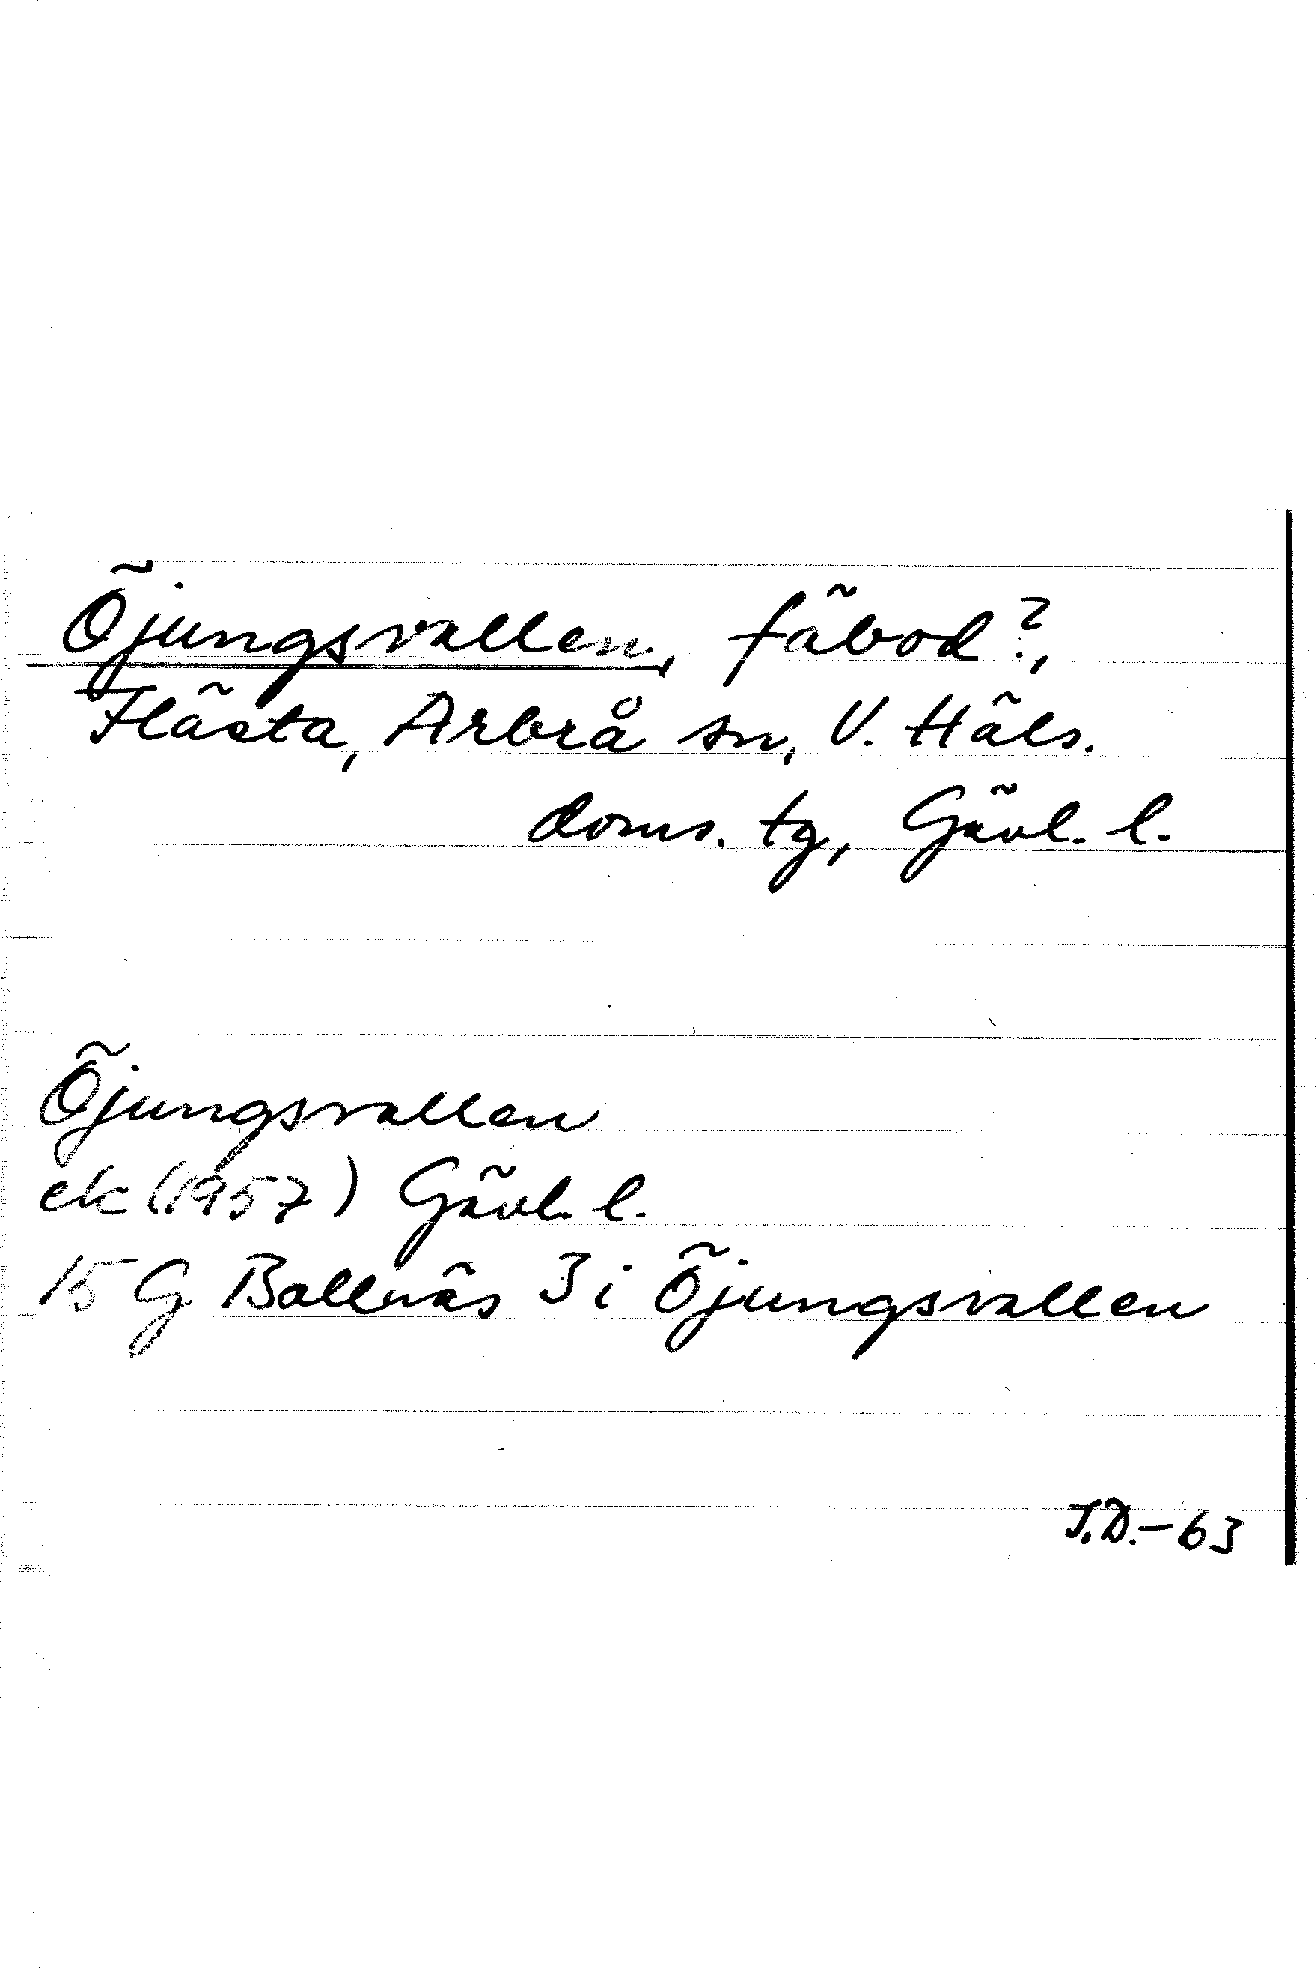 Öjungsvallen, fäbod?,
Flästa, Arbrå sn, V. Häls.
doms. tg, Gävl. l.
Öjungsvallen
ek (1957) Gävl. l.
15 G Bollnäs 3 i Öjungsvallen
J.D.-63